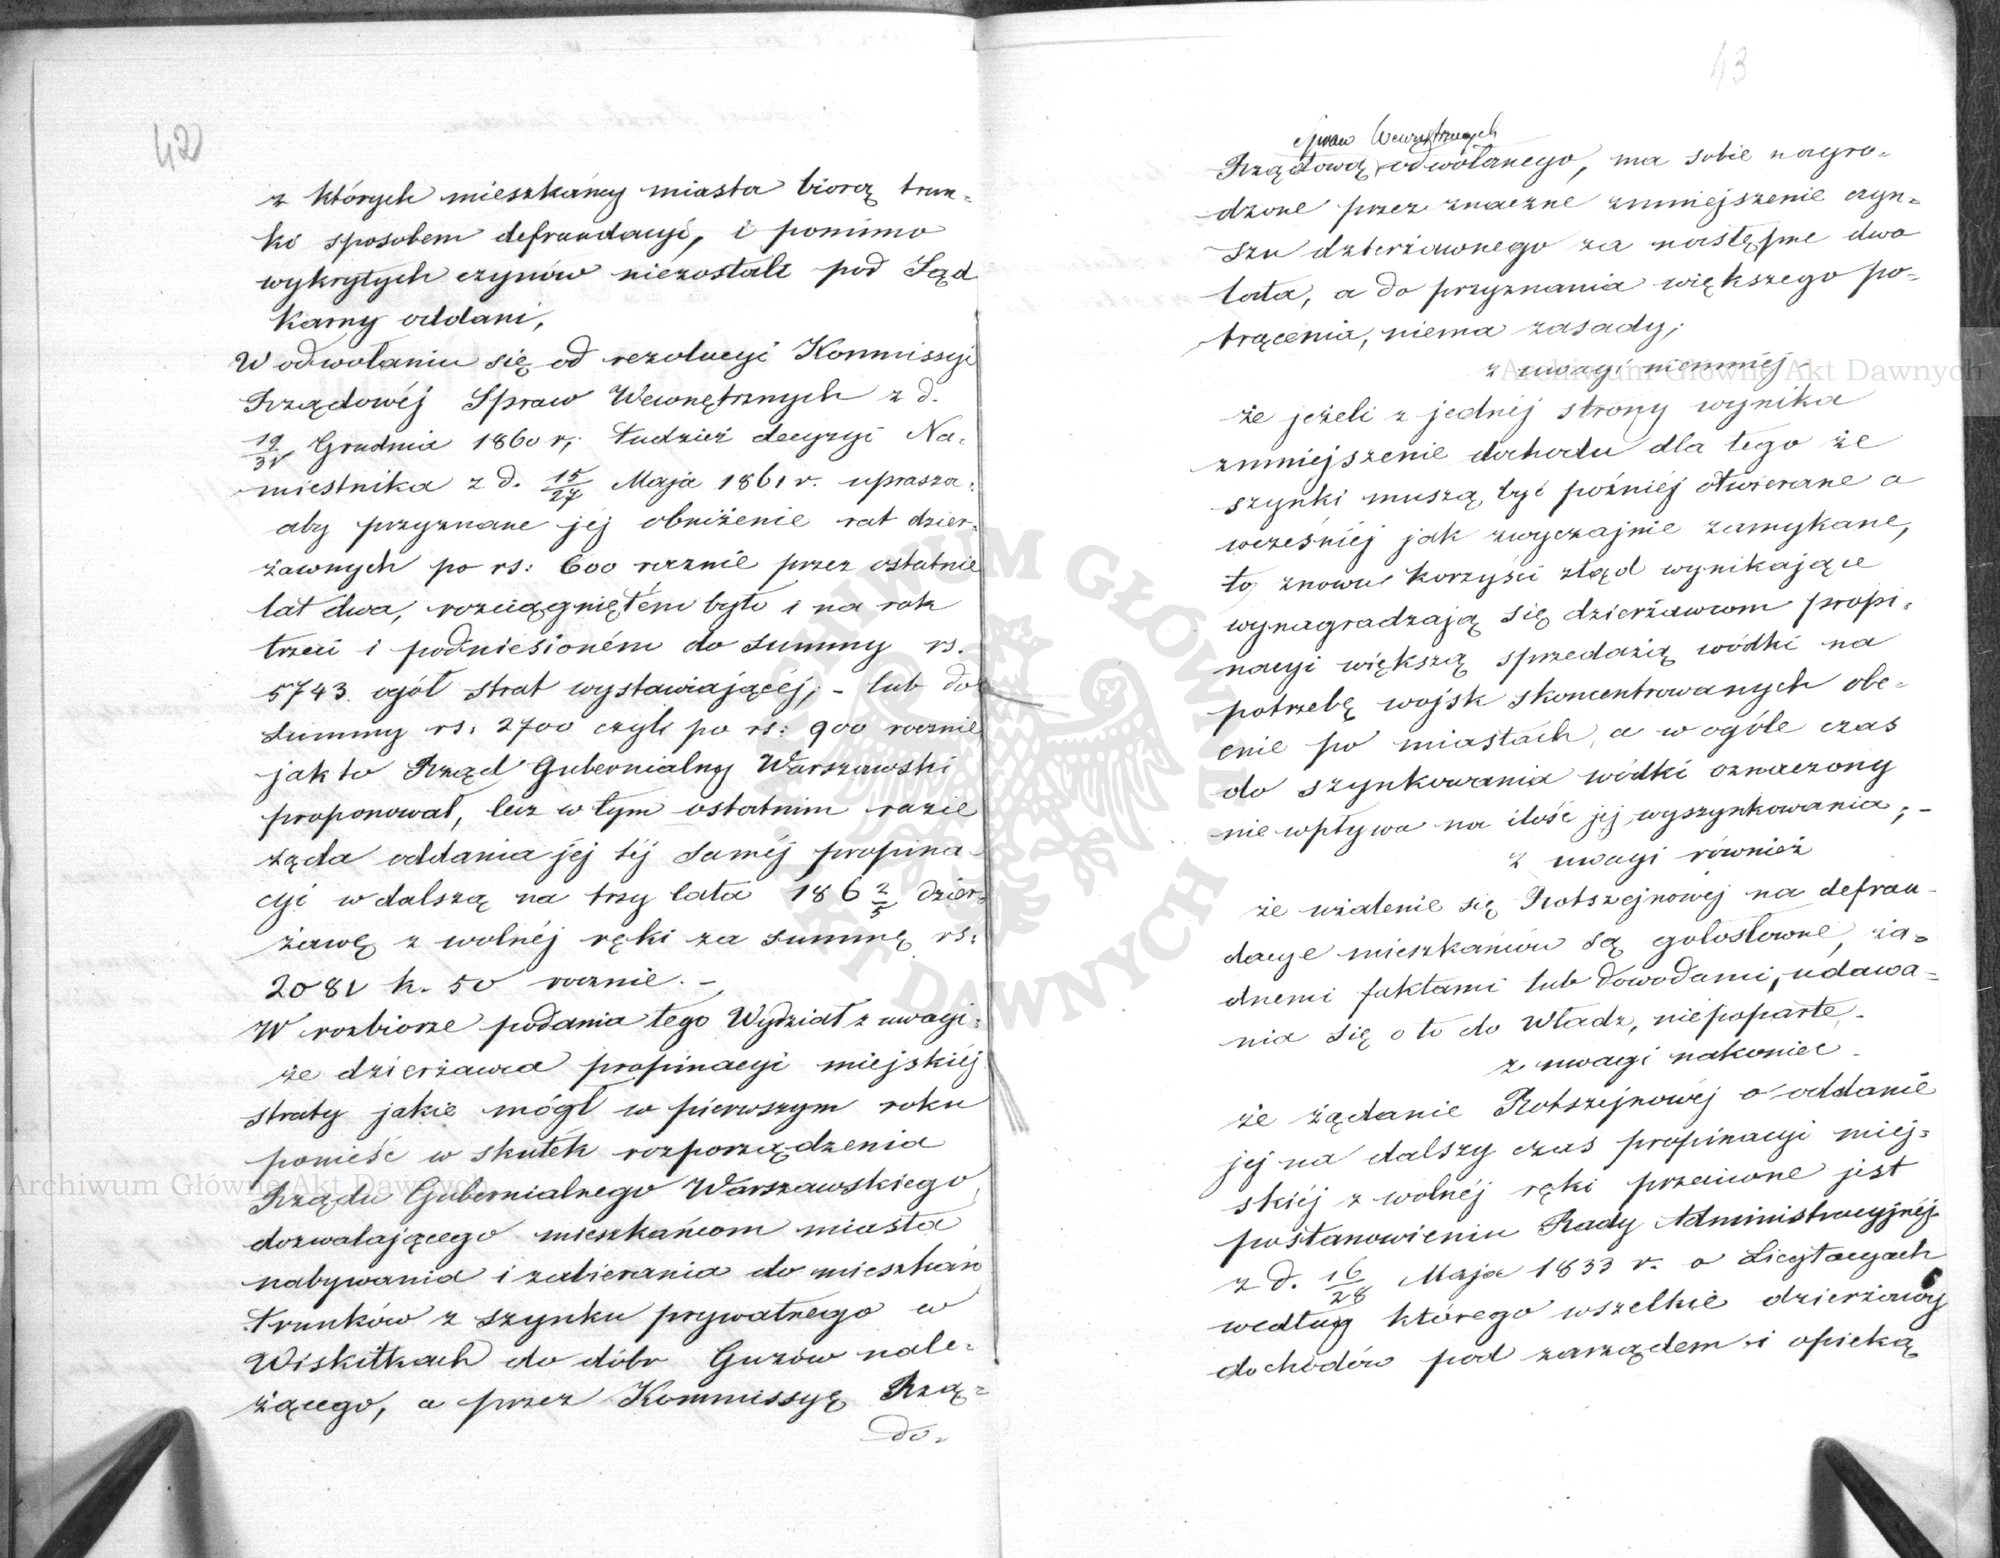 42
z których mieszkańcy miasta biorą trun=
ki sposobem defraudacyi, i pomimo
wykrytych czynów niezostali pod Sąd
karny oddani,
W odwołaniu się od rezolucyi Kommissyi
Rządowéj Spraw Wewnętrznych z d.
19/31 Grudnia 1860 r, tudzież decyzyi Na=
miestnika z d. 15/27 Maja 1861 r. uprasza:
aby przyznane jéj obniżenie rat dzier=
żawnych po rs: 600 rocznie przez ostatnie
lat dwa, rozciągniętém było i na rok
trzeci i podniesioném do summy rs.
5743. ogół strat wystawiającéj; - lub do
summy rs: 2700 czyli po rs: 900 rocznie
jak to Rząd Gubernialny Warszawski
proponował, lecz w tym ostatnim razie
żąda oddania jéj téj saméj propina=
cyi w dalszą na trzy lata 186 2/5 dzier=
żawę z wolnéj ręki za summę rs:
2081 k. 50 rocznie. -
W rozbiorze podania tego Wydział z uwagi:
że dzierżawca propinacyi miejskiéj
straty jakie mógł w pierwszym roku
ponieść w skutek rozporządzenia
Rządu Gubernialnego Warszawskiego,
dozwalającego mieszkańcom miasta
nabywania i zabierania do mieszkań
trunków z szynku prywatnego w
Wiskitkach do dóbr Guzów nale=
żącego, a przez Kommissyę Rzą=
do=
43
Spraw Wewnętrznych
Rządową odwołanego, ma sobie nagro=
dzone przez znaczne zmniejszenie czyn=
szu dzierżawnego za następne dwa
lata, a do przyznania większego po=
trącenia, niema zasady;
z uwagi niemniéj
że jeżeli z jednéj strony wynika
zmniejszenie dochodu dla tego że
szynki muszą być późniéj otwierane a
wcześniéj jak zwyczajnie zamykane,
to znowu korzyści ztąd wynikające
wynagradzają się dzierżawcom propi=
nacyi większą sprzedażią wódki na
potrzebę wojsk skoncentrowanych obe=
cnie po miastach, a w ogóle czas
do szynkowania wódki oznaczony
nie wpływa na ilość jéj wyszynkowania; -
z uwagi również
że użalenie się Rotszejnowéj na defrau=
dacye mieszkańców są gołosłowne, ża=
dnemi faktami lub dowodami, udawa=
nia się o to do Władz, niepoparte, -
z uwagi nakoniec -
że żądanie Rotszejnowéj o oddanie
jéj na dalszy czas propinacyi miej=
skiéj z wolnéj ręki przeciwne jest
postanowieniu Rady Administracyjnéj
z d. 16/28 Maja 1833 r. o Licytacyach
według którego wszelkie dzierżawy
dochodów pod zarządem i opieką
Archiwum Główne Akt Dawnych
Archiwum Główne Akt Dawnych
ARCHIWUM GŁÓWNE AKT DAWNYCH